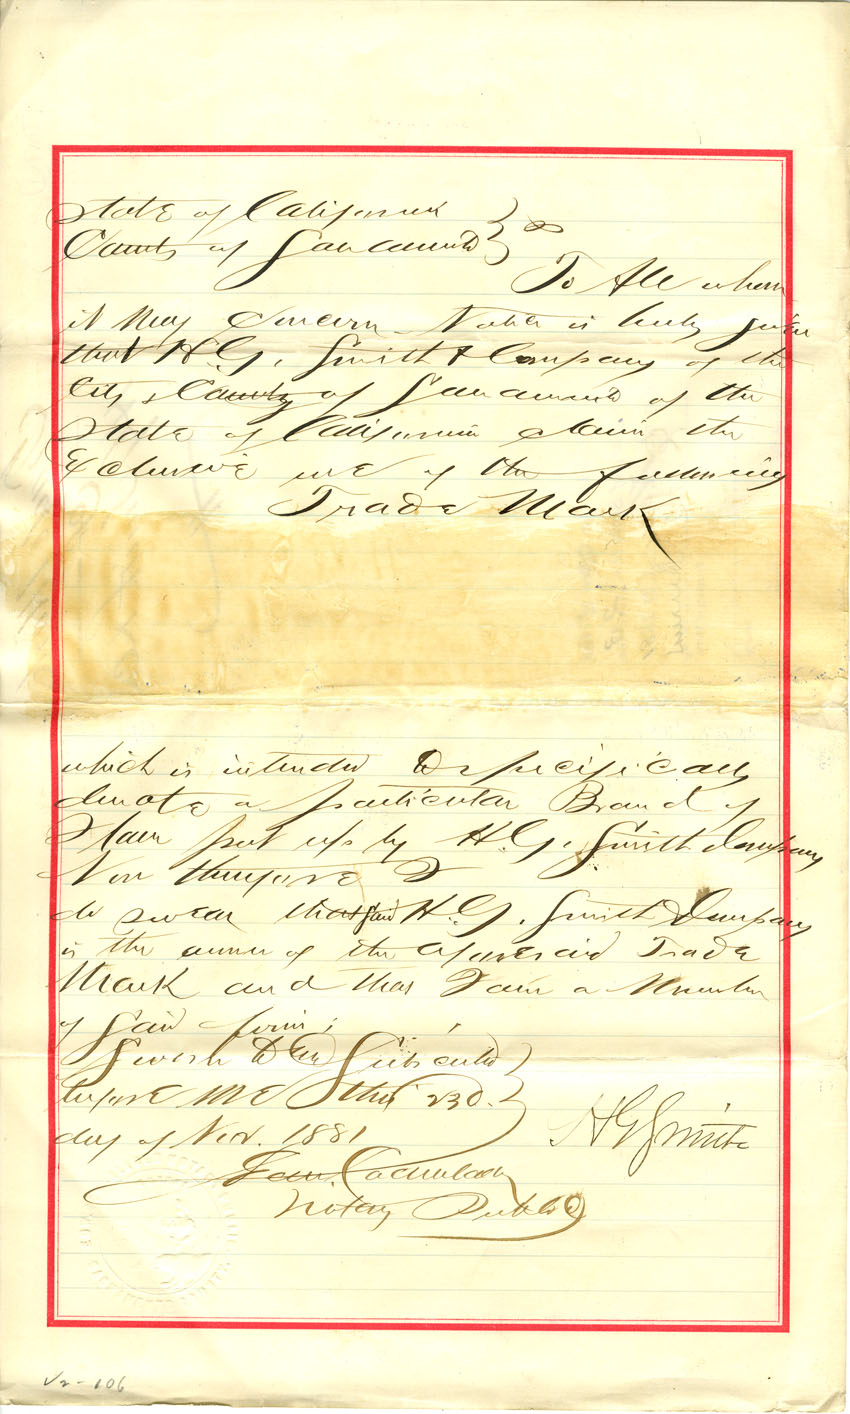 State of California
County of Sacramento } ss
To All whom
it May Concern Notice is hereby given
that H.G. Smith & Company of the
City & County of Sacramento of the
State of California claim the
Exclusive use of the following
Trade Mark
which is intended to specifically
denote a particular Brand of
put up by H.G. Smith & Company
Now therefore I
do swear that said H.G. Smith & Company
is the owner of the aforesaid Trade
Mark and that I am a Member
of said firm;
Sworn to and Subscribed
before me this 23d.
day of Nov. 1881
H G Smith
Notary Public
V2-106